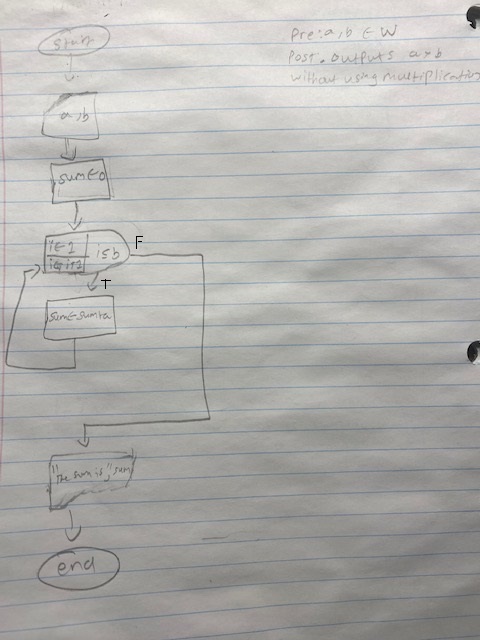 Pre: a, b ∈ W
Post. outputs a×b
without using multiplication
start
a, b
sum←0
i←1
i←i+1
i≤b
F
T
sum←sum+a
"The sum is", sum
end